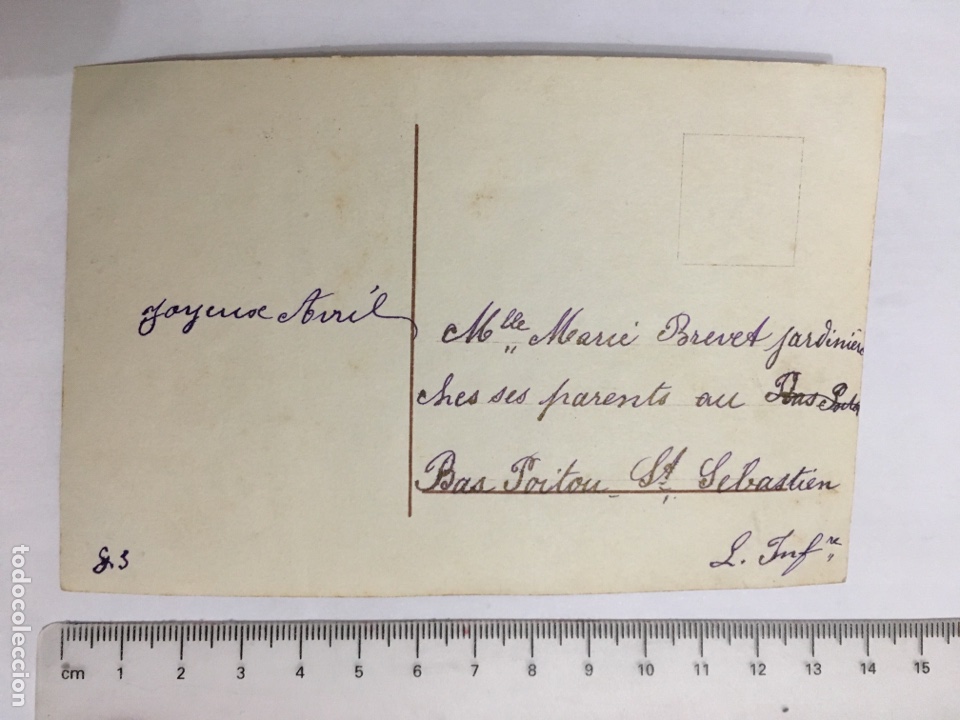 Joyeux Avril
Mlle Marie Brevet jardinière
ches ses parents au Bas Poitou
Bas Poitou St Sebastien
L. Infre
cm 1 2 3 4 5 6 7 8 9 10 11 12 13 14 15
todocoleccion